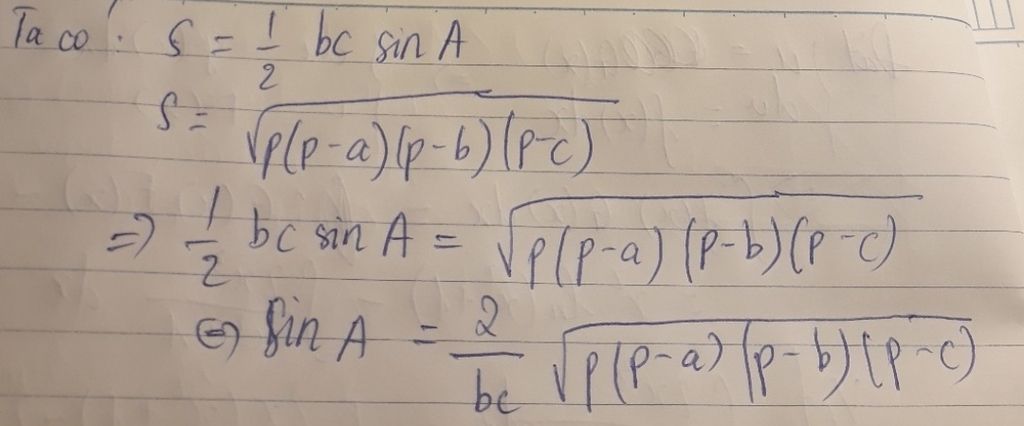 Ta có: S = 1/2 bc sin A
S = √(p(p-a)(p-b)(p-c))
=> 1/2 bc sin A = √(p(p-a)(p-b)(p-c))
<=> Sin A = 2/bc √(p(p-a)(p-b)(p-c))